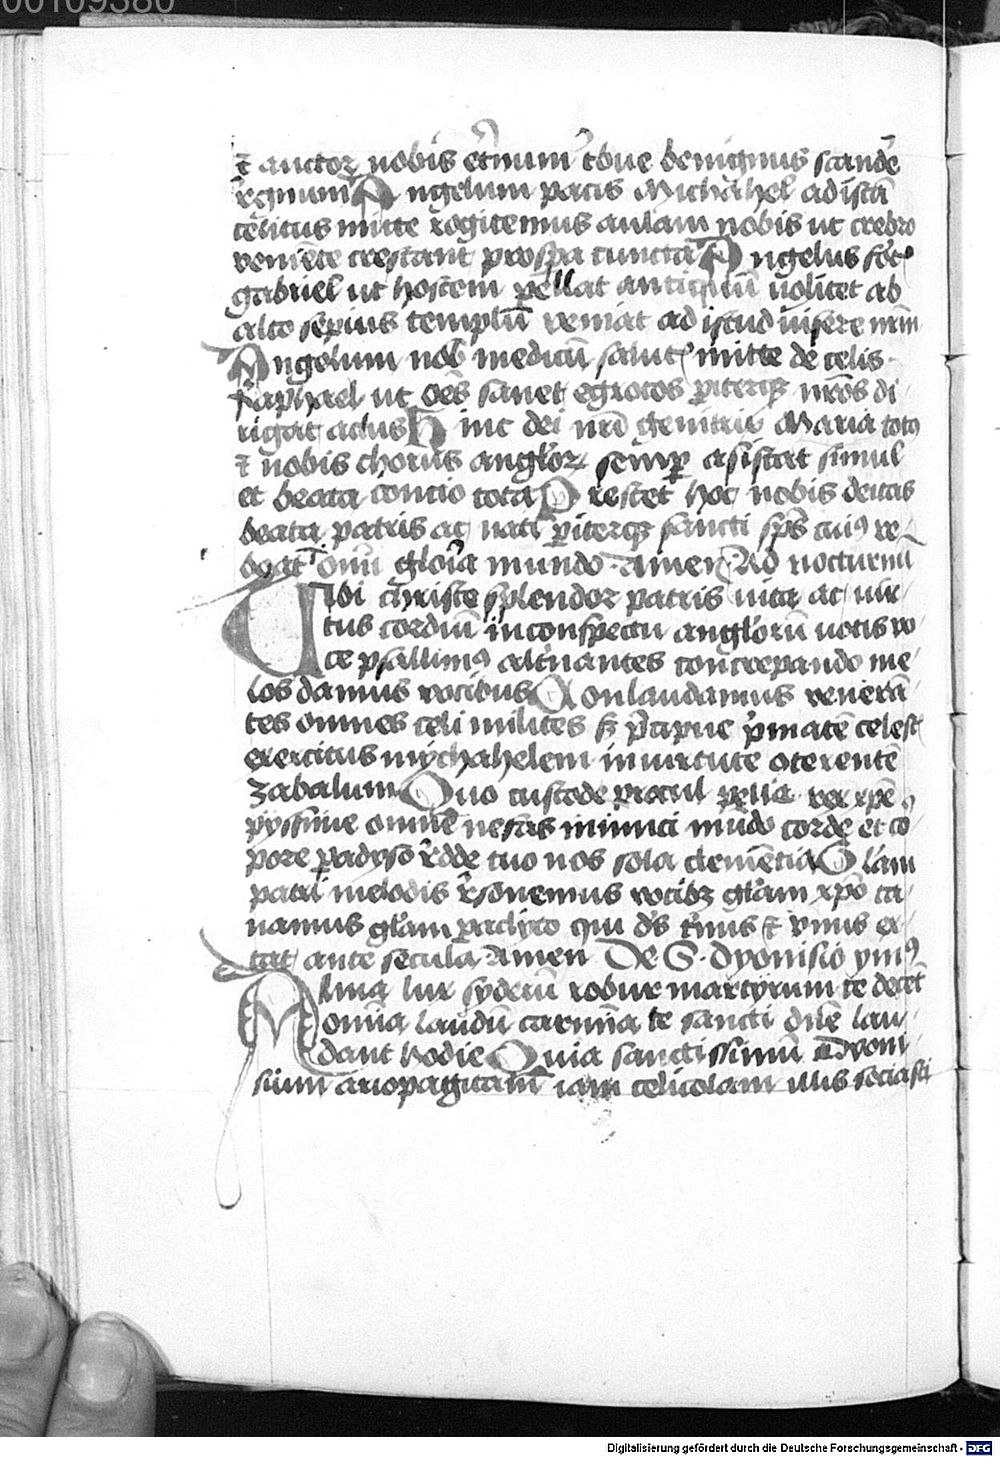 00109380
⁊ auctor nobis et̾num tbue benignus scandē
regnum Angelum pacis Michahel ad istā
celitus mitte rogitemus aulam nobis ut crebro
veniēte crescant prosꝑa cuncta Angelus fort᷒
gabriel ut hostem pellat antiquū volitet ab
alto sepius templū veniat ad istud visere nrm̄
Angelum nob̄ medicū salut᷒ mitte de celis
Raphael ut oēs sanet egrotos pariterqꝫ nrōs di
rigat actus Hinc dei nrī genitrix Maria totꝰ
⁊ nobis chorus anglor̄ semꝑ assistat simul
et beata contio tota Prestet hoc nobis deitas
beata patris ac nati pariterqꝫ sancti sps̄ cuiꝰ re-
boat ī omni gloria mundo Amen Ad nocturnū
Tibi christe splendor patris vita ac vir
tus cordiū in conspectu anglorū votis vo
ce psallimꝰ alt̾nantes concrepando me
los damus vocibus Conlaudamus venerā
tes omnes celi milites sꝫ p̄cipue p̄matē celest᷒
exercitus mychahelem in virtute cōterentē
zabalum Quo custode procul pelle rex xpē
pyssime omne nefas inimici mūdo corde et cō
pore ꝑadyso redde tuo nos sola clemētia Glam
patri melodis ꝑsonemus vocibꝫ glam xpō ca
namus glam paclyto qui ds̄ trinus ⁊ vnus ex
tat ante secula Amen De S. Dyonisio ymꝰ
Alma lux syderū robur martyrum te decet
omīa laudū carmīa te sancti dnē lau
dant hodie Quia sanctissimū Dyoni
sium ariopagitam iam celicolam illis sociasti
Digitalisierung gefördert durch die Deutsche Forschungsgemeinschaft - DFG